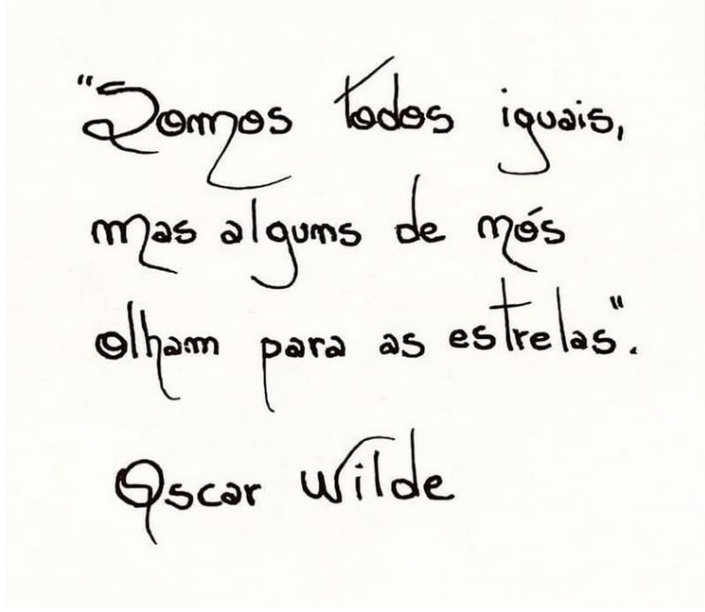 "Somos todos iguais,
mas alguns de nós
olham para as estrelas".
Oscar Wilde